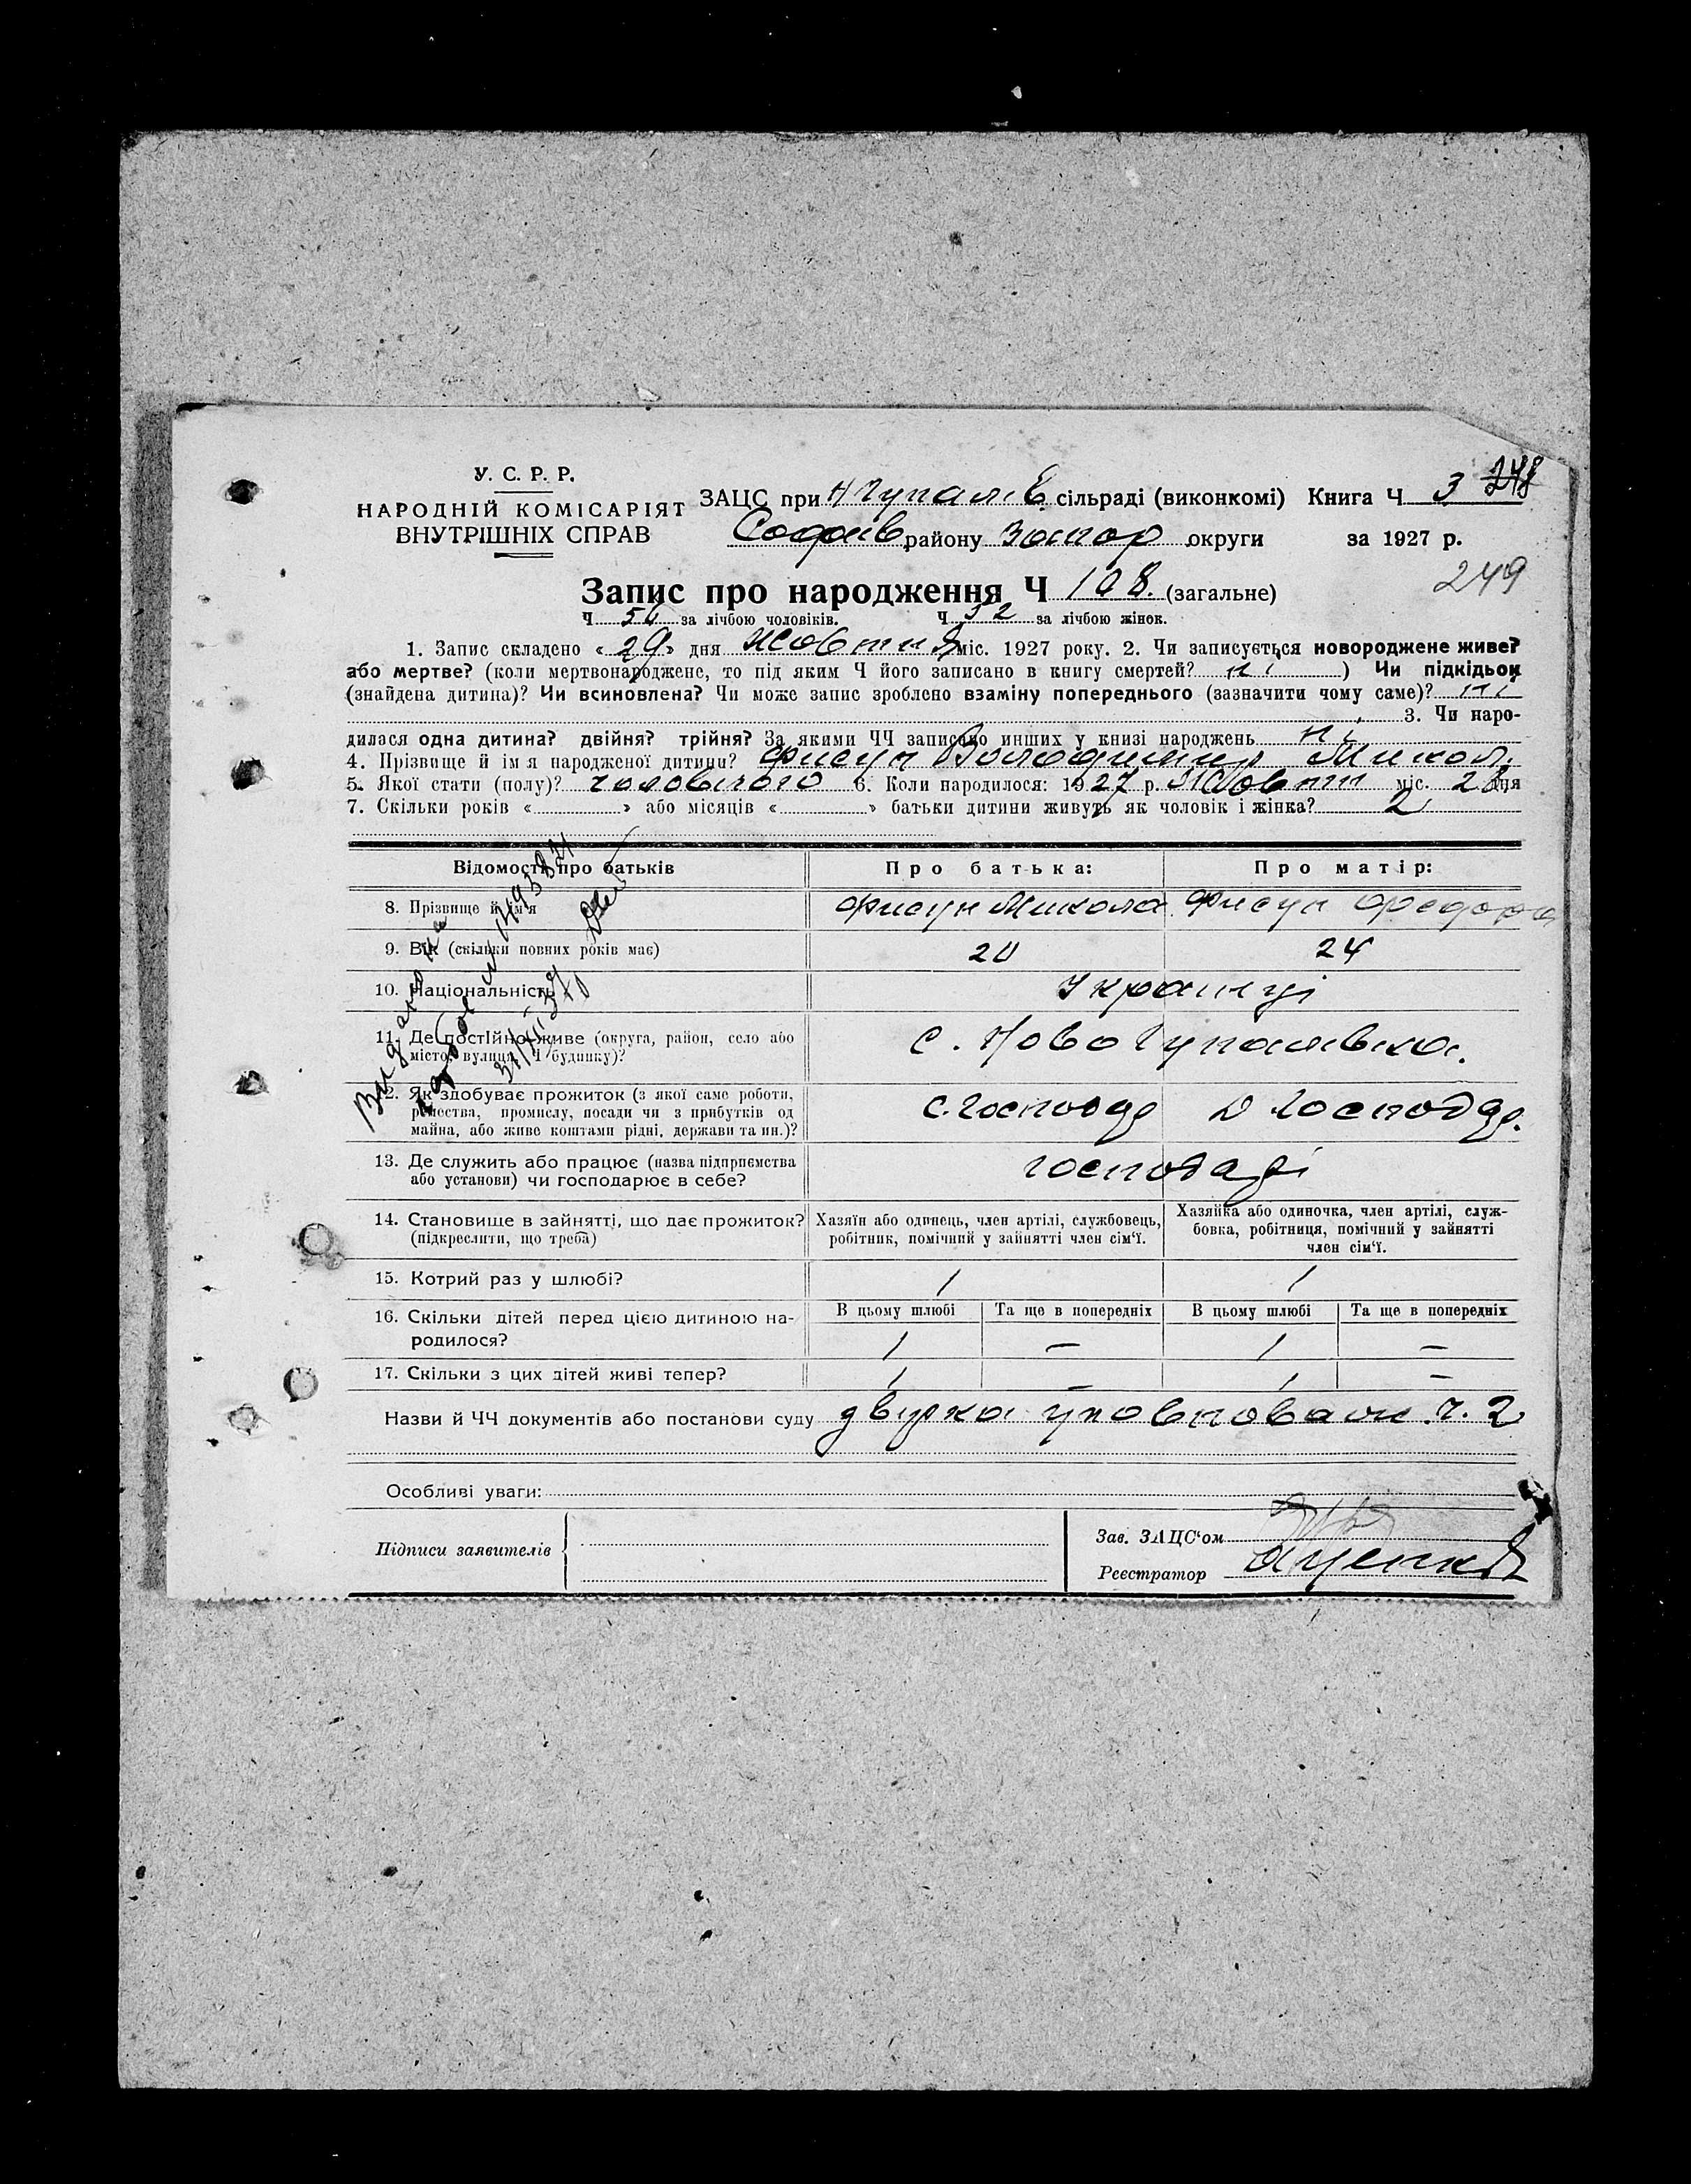 У. С. Р. Р.
НАРОДНІЙ КОМІСАРІЯТ
ВНУТРІШНІХ СПРАВ
ЗАЦС при Н Гупалів сільраді (виконкомі) Книга Ч 3 248
Софіїв району Запор округи за 1927 р.
249
Запис про народження Ч 108. (загальне)
Ч 56 за лічбою чоловіків. Ч 52 за лічбою жінок.
1. Запис складено « 29 » дня Жовтня міс. 1927 року. 2. Чи записується новороджене живе?
або мертве? (коли мертвонароджене, то під яким Ч його записано в книгу смертей? ні ) Чи підкідьок
(знайдена дитина)? Чи всиновлена? Чи може запис зроблено взаміну попереднього (зазначити чому саме)? ні
3. Чи наро-
дилася одна дитина? двійня? трійня? За якими ЧЧ записано инших у книзі народжень ні
4. Прізвище й ім'я народженої дитини? Фисун Володимир Микол.
5. Якої стати (полу)? чоловічого 6. Коли народилося: 1927 р. Жовтн міс. 28 дня
7. Скільки років « » або місяців « » батьки дитини живуть як чоловік і жінка? 2
Відомості про батьків Про батька: Про матір:
8. Прізвище й ім'я Фисун Микола Фисун
9. Вік (скільки повних років має) 20 24
10. Національність Украінці
11. Де постійно живе (округа, район, село або
місто, вулиця, Ч будинку)? с. Ново Гупалівка.
12. Як здобуває прожиток (з якої саме роботи,
ремества, промислу, посади чи з прибутків од
майна, або живе коштами рідні, держави та ин.)? С. господр Д господр.
13. Де служить або працює (назва підприємства
або установи) чи господарює в себе? господарі
14. Становище в зайнятті, що дає прожиток?
(підкреслити, що треба)
Хазяїн або одинець, член артілі, службовець,
робітник, помічний у зайнятті член сім'ї.
Хазяйка або одиночка, член артілі, служ-
бовка, робітниця, помічний у зайнятті
член сім'ї.
15. Котрий раз у шлюбі? 1 1
16. Скільки дітей перед цією дитиною на-
родилося?
В цьому шлюбі Та ще в попередніх В цьому шлюбі Та ще в попередніх
1 — 1 —
17. Скільки з цих дітей живі тепер? 1 — 1 —
Назви й ЧЧ документів або постанови суду ч. 2
Особливі уваги:
Підписи заявителів
Зав. ЗАЦС'ом
Реєстратор Яценко